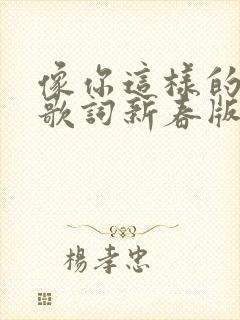 像你這樣的
歌詞新春版
楊孝忠